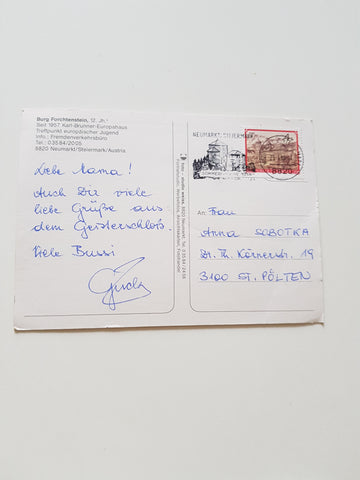 Burg Forchtenstein, 12. Jh.
Seit 1957 Karl-Brunner-Europahaus
Treffpunkt europäischer Jugend
Info.: Fremdenverkehrsbüro
Tel.: 03584/2005
8820 Neumarkt/Steiermark/Austria
Liebe Mama!
Auch Dir viele
liebe Grüße aus
dem Geisterschloß.
Viele Bussi
NEUMARKT-STEIERMARK
8820
An: Frau
Anna SOBOTKA
Dr. Th. Körnerstr. 19
3100 ST. PÖLTEN